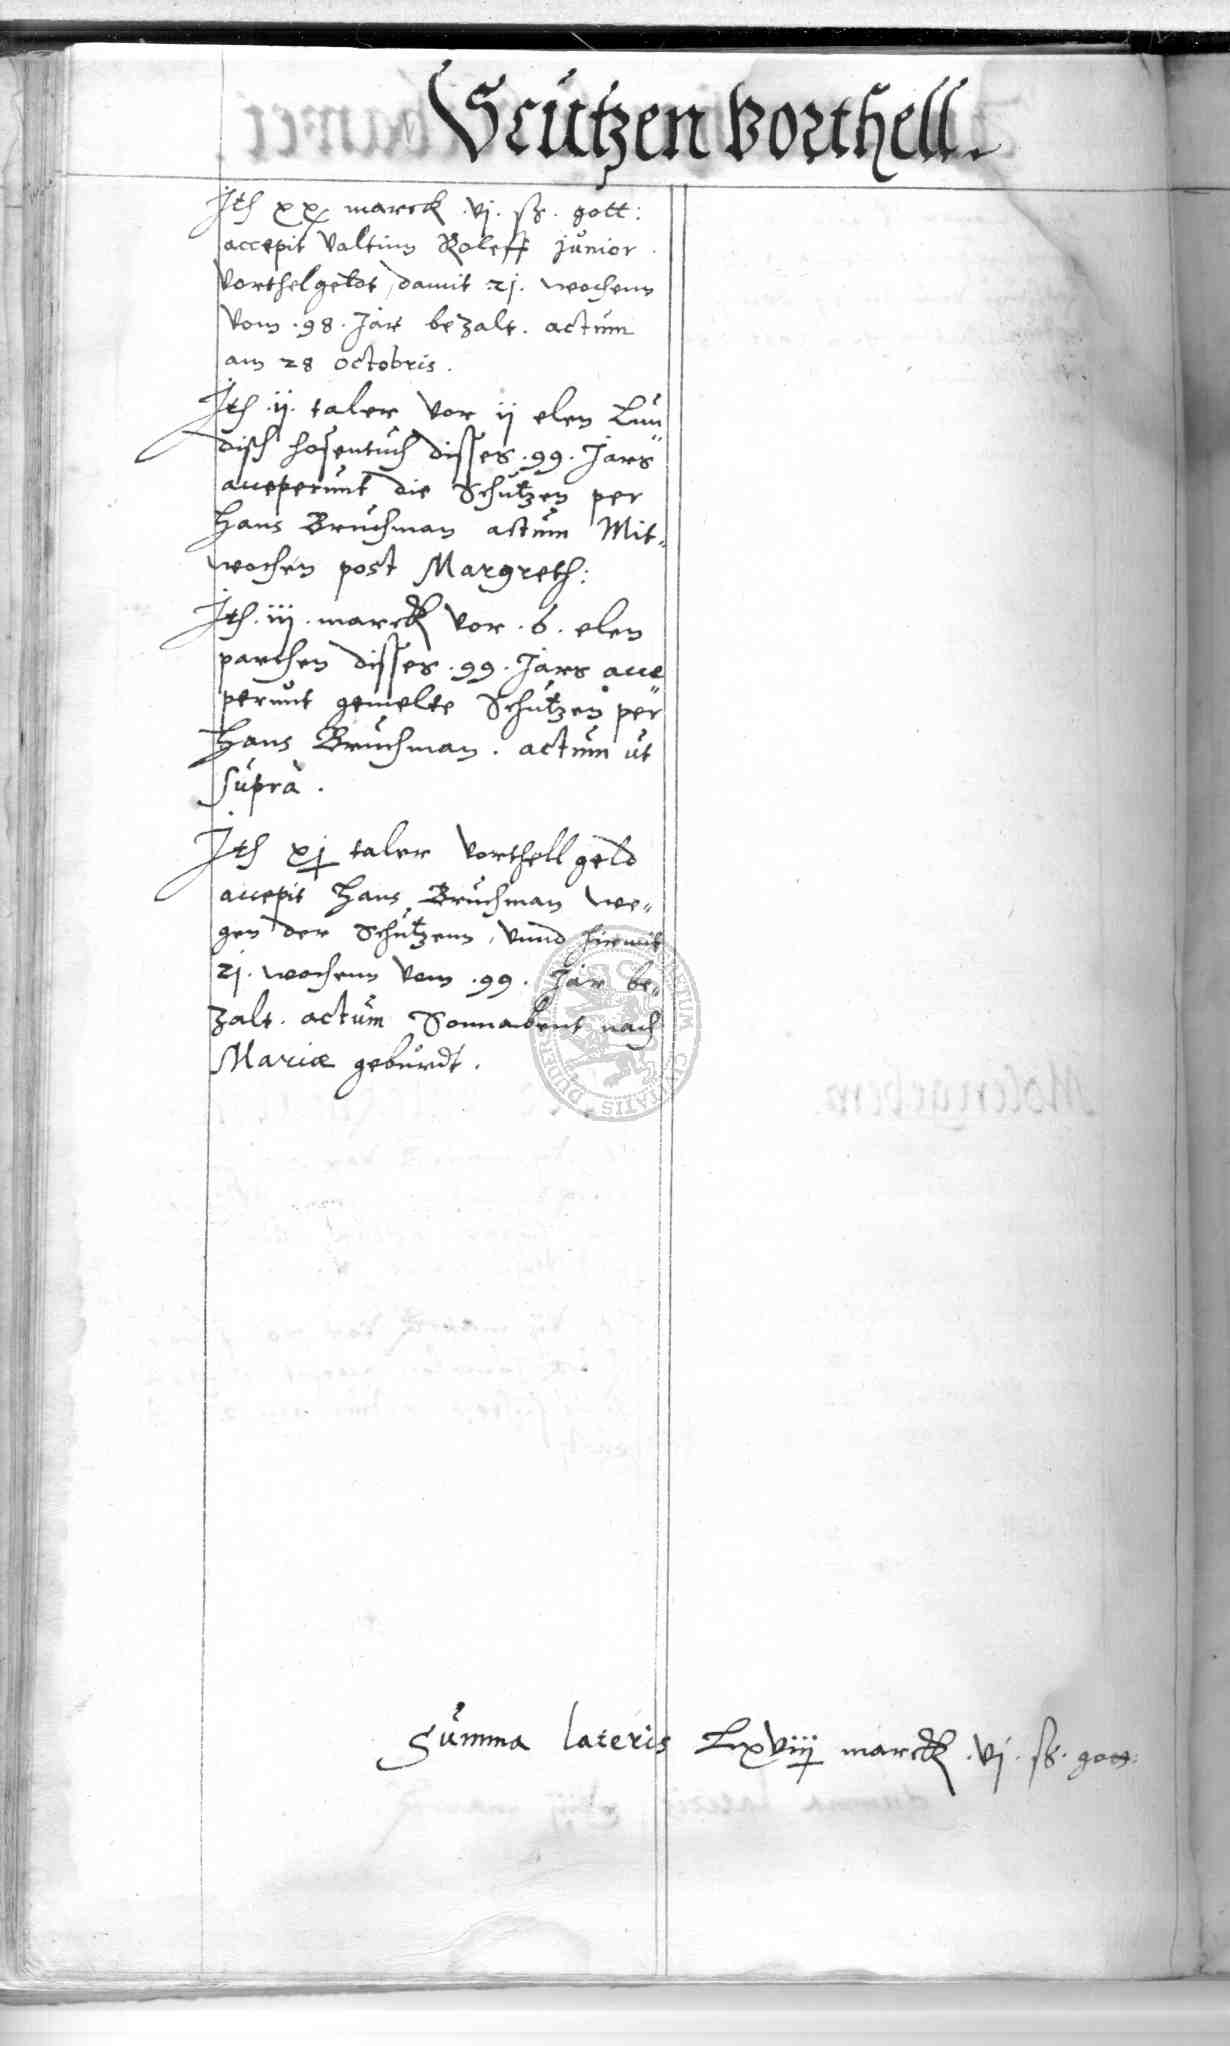 Scutzen Vorthell.
Ith xx marck .vj. ß. gott:
accepit Valtinn Roleff junior
Vorthelgeldt, damit 21. wochenn
Vom .98. Jar bezalt. actum
am 28 octobris.
Ith .ij. taler vor ij elen Lun„
disch hosentuch disses .99. Jars
acceperunt die Schutzen per
Hans Bruchman actum Mit„
wochen post Margreth:
Ith .iij. marck vor .6. elen
parchen disses .99. Jars acce„
perunt gemelte Schutzen per
Hans Bruchman. actum ut
supra.
Ith xj taler vorthell geld
accepit Hans Bruchman we„
gen der Schutzenn, vnnd hiemit
21. wochenn vom .99. Jar be„
zalt. actum Sonnabent nach
Mariæ geburdt.
Summa lateris Lxviij marck .vj. ß. gott:
SIGILLUM CIVITATIS DUDER